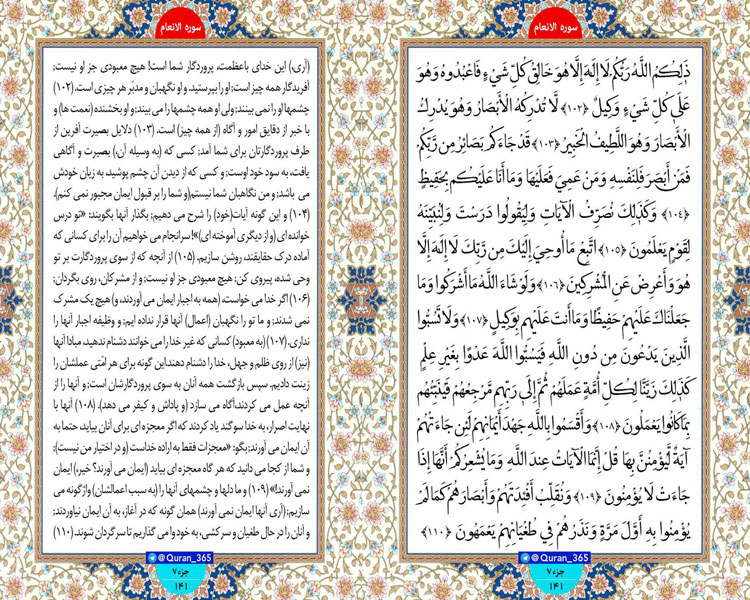 سوره الانعام
ذَٰلِكُمُ اللَّهُ رَبُّكُمْ لَا إِلَٰهَ إِلَّا هُوَ خَالِقُ كُلِّ شَيْءٍ فَاعْبُدُوهُ وَهُوَ
عَلَىٰ كُلِّ شَيْءٍ وَكِيلٌ ﴿۱۰۲﴾ لَا تُدْرِكُهُ الْأَبْصَارُ وَهُوَ يُدْرِكُ
الْأَبْصَارَ وَهُوَ اللَّطِيفُ الْخَبِيرُ ﴿۱۰۳﴾ قَدْ جَاءَكُمْ بَصَائِرُ مِنْ رَبِّكُمْ
فَمَنْ أَبْصَرَ فَلِنَفْسِهِ وَمَنْ عَمِيَ فَعَلَيْهَا وَمَا أَنَا عَلَيْكُمْ بِحَفِيظٍ
﴿۱۰۴﴾ وَكَذَٰلِكَ نُصَرِّفُ الْآيَاتِ وَلِيَقُولُوا دَرَسْتَ وَلِنُبَيِّنَهُ
لِقَوْمٍ يَعْلَمُونَ ﴿۱۰۵﴾ اتَّبِعْ مَا أُوحِيَ إِلَيْكَ مِنْ رَبِّكَ لَا إِلَٰهَ إِلَّا
هُوَ وَأَعْرِضْ عَنِ الْمُشْرِكِينَ ﴿۱۰۶﴾ وَلَوْ شَاءَ اللَّهُ مَا أَشْرَكُوا وَمَا
جَعَلْنَاكَ عَلَيْهِمْ حَفِيظًا وَمَا أَنْتَ عَلَيْهِمْ بِوَكِيلٍ ﴿۱۰۷﴾ وَلَا تَسُبُّوا
الَّذِينَ يَدْعُونَ مِنْ دُونِ اللَّهِ فَيَسُبُّوا اللَّهَ عَدْوًا بِغَيْرِ عِلْمٍ
كَذَٰلِكَ زَيَّنَّا لِكُلِّ أُمَّةٍ عَمَلَهُمْ ثُمَّ إِلَىٰ رَبِّهِمْ مَرْجِعُهُمْ فَيُنَبِّئُهُمْ
بِمَا كَانُوا يَعْمَلُونَ ﴿۱۰۸﴾ وَأَقْسَمُوا بِاللَّهِ جَهْدَ أَيْمَانِهِمْ لَئِنْ جَاءَتْهُمْ
آيَةٌ لَيُؤْمِنُنَّ بِهَا قُلْ إِنَّمَا الْآيَاتُ عِنْدَ اللَّهِ وَمَا يُشْعِرُكُمْ أَنَّهَا إِذَا
جَاءَتْ لَا يُؤْمِنُونَ ﴿۱۰۹﴾ وَنُقَلِّبُ أَفْئِدَتَهُمْ وَأَبْصَارَهُمْ كَمَا لَمْ
يُؤْمِنُوا بِهِ أَوَّلَ مَرَّةٍ وَنَذَرُهُمْ فِي طُغْيَانِهِمْ يَعْمَهُونَ ﴿۱۱۰﴾
@Quran_365
جزء ۷
۱۴۱
سوره الانعام
(آری) این خدای باعظمت، پروردگار شما است! هیچ معبودی جز او نیست؛
آفریدگار همه چیز است؛ او را بپرستید. و او نگهبان و مدبر هر چیزی است. (۱۰۲)
چشمها او را نمی بینند؛ ولی او همه چشمها را می بیند؛ و او بخشنده (نعمت ها) و
با خبر از دقایق امور و آگاه (از همه چیز) است. (۱۰۳) دلایل بصیرت آفرین از
طرف پروردگارتان برای شما آمد؛ کسی که (به وسیله آن،) بصیرت و آگاهی
یافت، به سود خود اوست؛ و کسی که از دیدن آن چشم پوشید، به زیان خودش
می باشد؛ و من نگاهبان شما نیستم(و شما را بر قبول ایمان مجبور نمی کنم).
(۱۰۴) و این گونه آیات(خود) را شرح می دهیم؛ بگذار آنها بگویند: «تو درس
خوانده ای (و از دیگری آموخته ای)»! سرانجام می خواهیم آن را برای کسانی که
آماده درک حقایقند، روشن سازیم. (۱۰۵) از آنچه که از سوی پروردگارت بر تو
وحی شده، پیروی کن؛ هیچ معبودی جز او نیست؛ و از مشرکان، روی بگردان؛
(۱۰۶) اگر خدا می خواست، (همه به اجبار ایمان می آوردند، و) هیچ یک مشرک
نمی شدند؛ و ما تو را نگهبان (اعمال) آنها قرار نداده ایم؛ و وظیفه اجبار آنها را
نداری. (۱۰۷) (به معبود) کسانی که غیر خدا را می خوانند دشنام ندهید، مبادا آنها
(نیز) از روی ظلم و جهل، خدا را دشنام دهند،این گونه برای هر امتی عملشان را
زینت دادیم. سپس بازگشت همه آنان به سوی پروردگارشان است؛ و آنها را از
آنچه عمل می کردند،آگاه می سازد (و پاداش و کیفر می دهد). (۱۰۸) آنها با
نهایت اصرار، به خدا سوگند یاد کردند که اگر معجزه ای برای آنان بیاید، حتما به
آن ایمان می آورند؛ بگو: «معجزات فقط به اراده خداست (و در اختیار من نیست)؛
و شما از کجا می دانید که هر گاه معجزه ای بیاید (ایمان می آورند؟ خیر،) ایمان
نمی آورند!» (۱۰۹) و ما دلها و چشمهای آنها را (به سبب اعمالشان) واژگونه می
سازیم؛ (آری آنها ایمان نمی آورند) همان گونه که در آغاز، به آن ایمان نیاوردند؛
و آنان را در حال طغیان و سرکشی، به خود وا می گذاریم تا سرگردان شوند. (۱۱۰)
@Quran_365
جزء ۷
۱۴۱